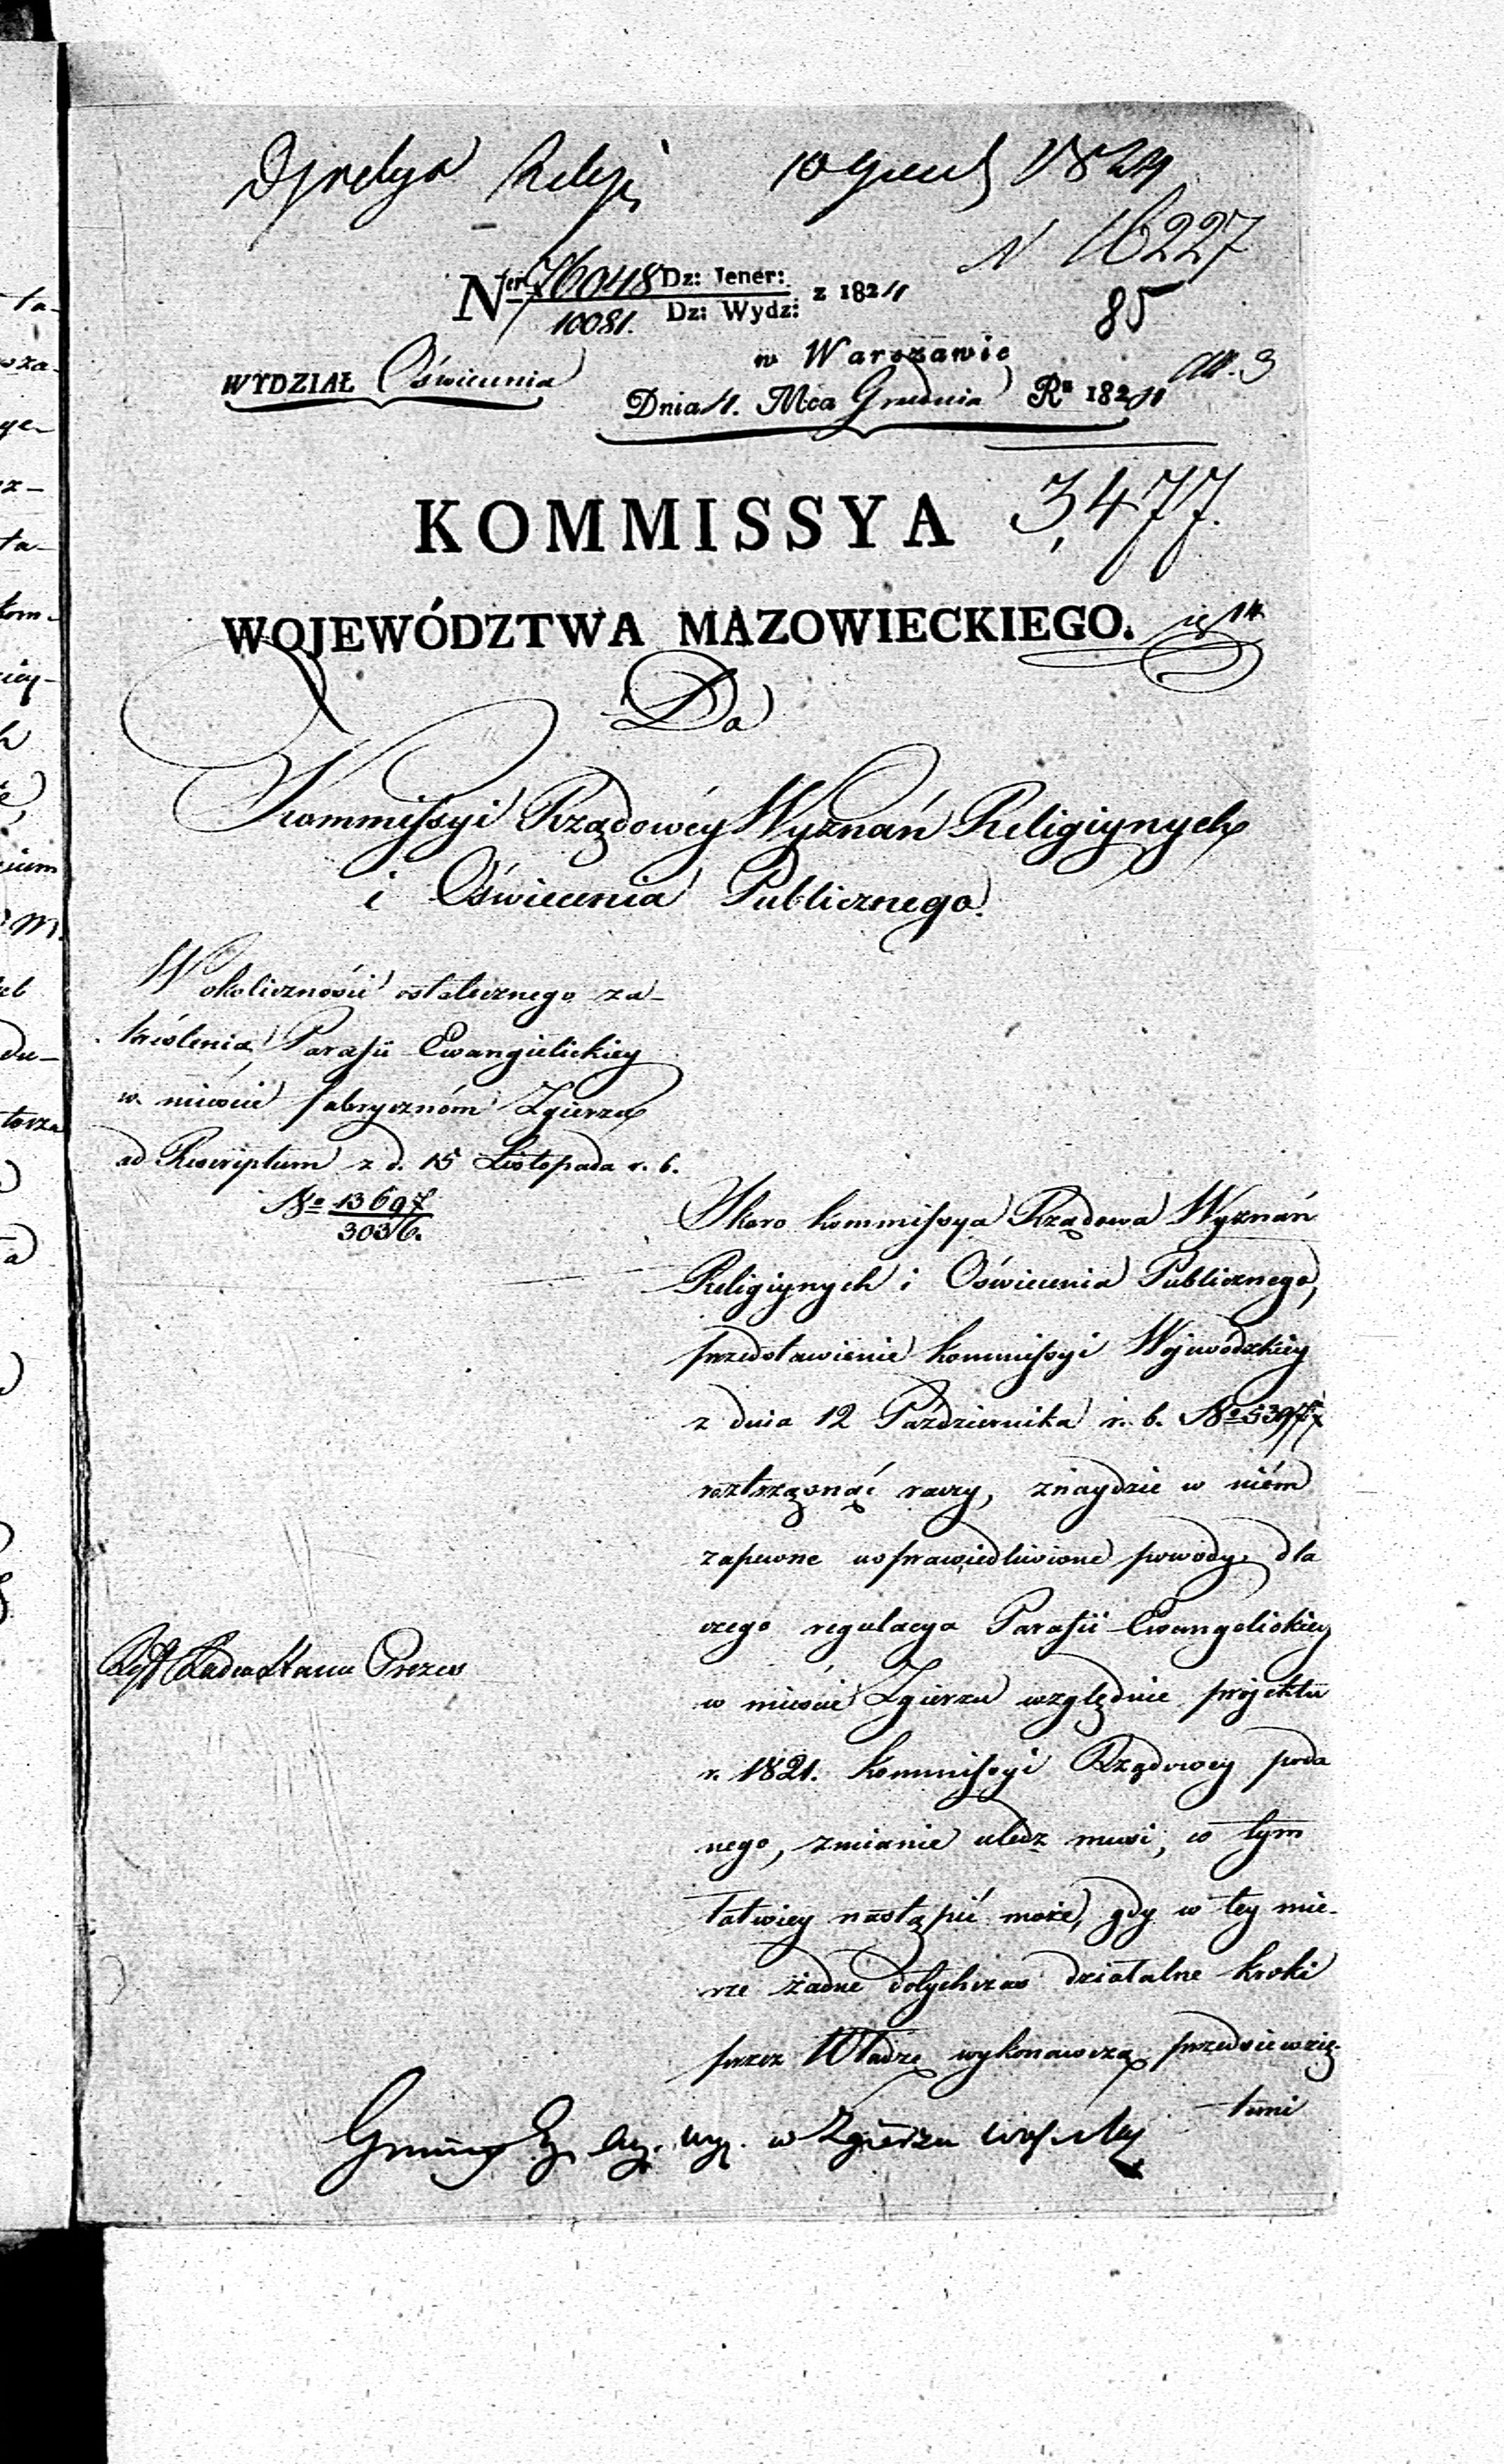 10 Grud 1824
N 16227
Ner 76048 Dz: Jener:
10081. Dz: Wydz: z 1824
85
w Warszawie
WYDZIAŁ Oświecenia
Dnia 4. Mca Grudnia Ru 1824
3,477.
KOMMISSYA
WOJEWÓDZTWA MAZOWIECKIEGO.
Do
Kommissyi Rządowéy Wyznań Religiynych
i Oświecenia Publicznego.
W okoliczności ostatecznego za-
kréslenia Parafii Ewangielickiey
w mieście fabryczném Zgierzu
ad Rescriptum z d. 15 Listopada r. b.
No 13697
3036.
Skoro Kommissya Rządowa Wyznań
Religiynych i Oświecenia Publicznego,
przedstawienie Kommissyi Wojewódzkiey
z dnia 12 Października r. b. No
roztrząsnąć raczy, znaydzie w niém
zapewne usprawiedliwione powody, dla
czego regulacya Parafii Ewangelickiey
w mieście Zgierzu względnie projektu
r. 1821. Kommissyi Rządowey poda
nego, zmianie uledz musi, co tym
łatwiey nastąpić może, gdy w tey mie-
rze żadne dotychczas działalne kroki
przez Władzę wykonawczą przedsiewzię-
temi
Radca Stanu Prezes
w Zgierzu